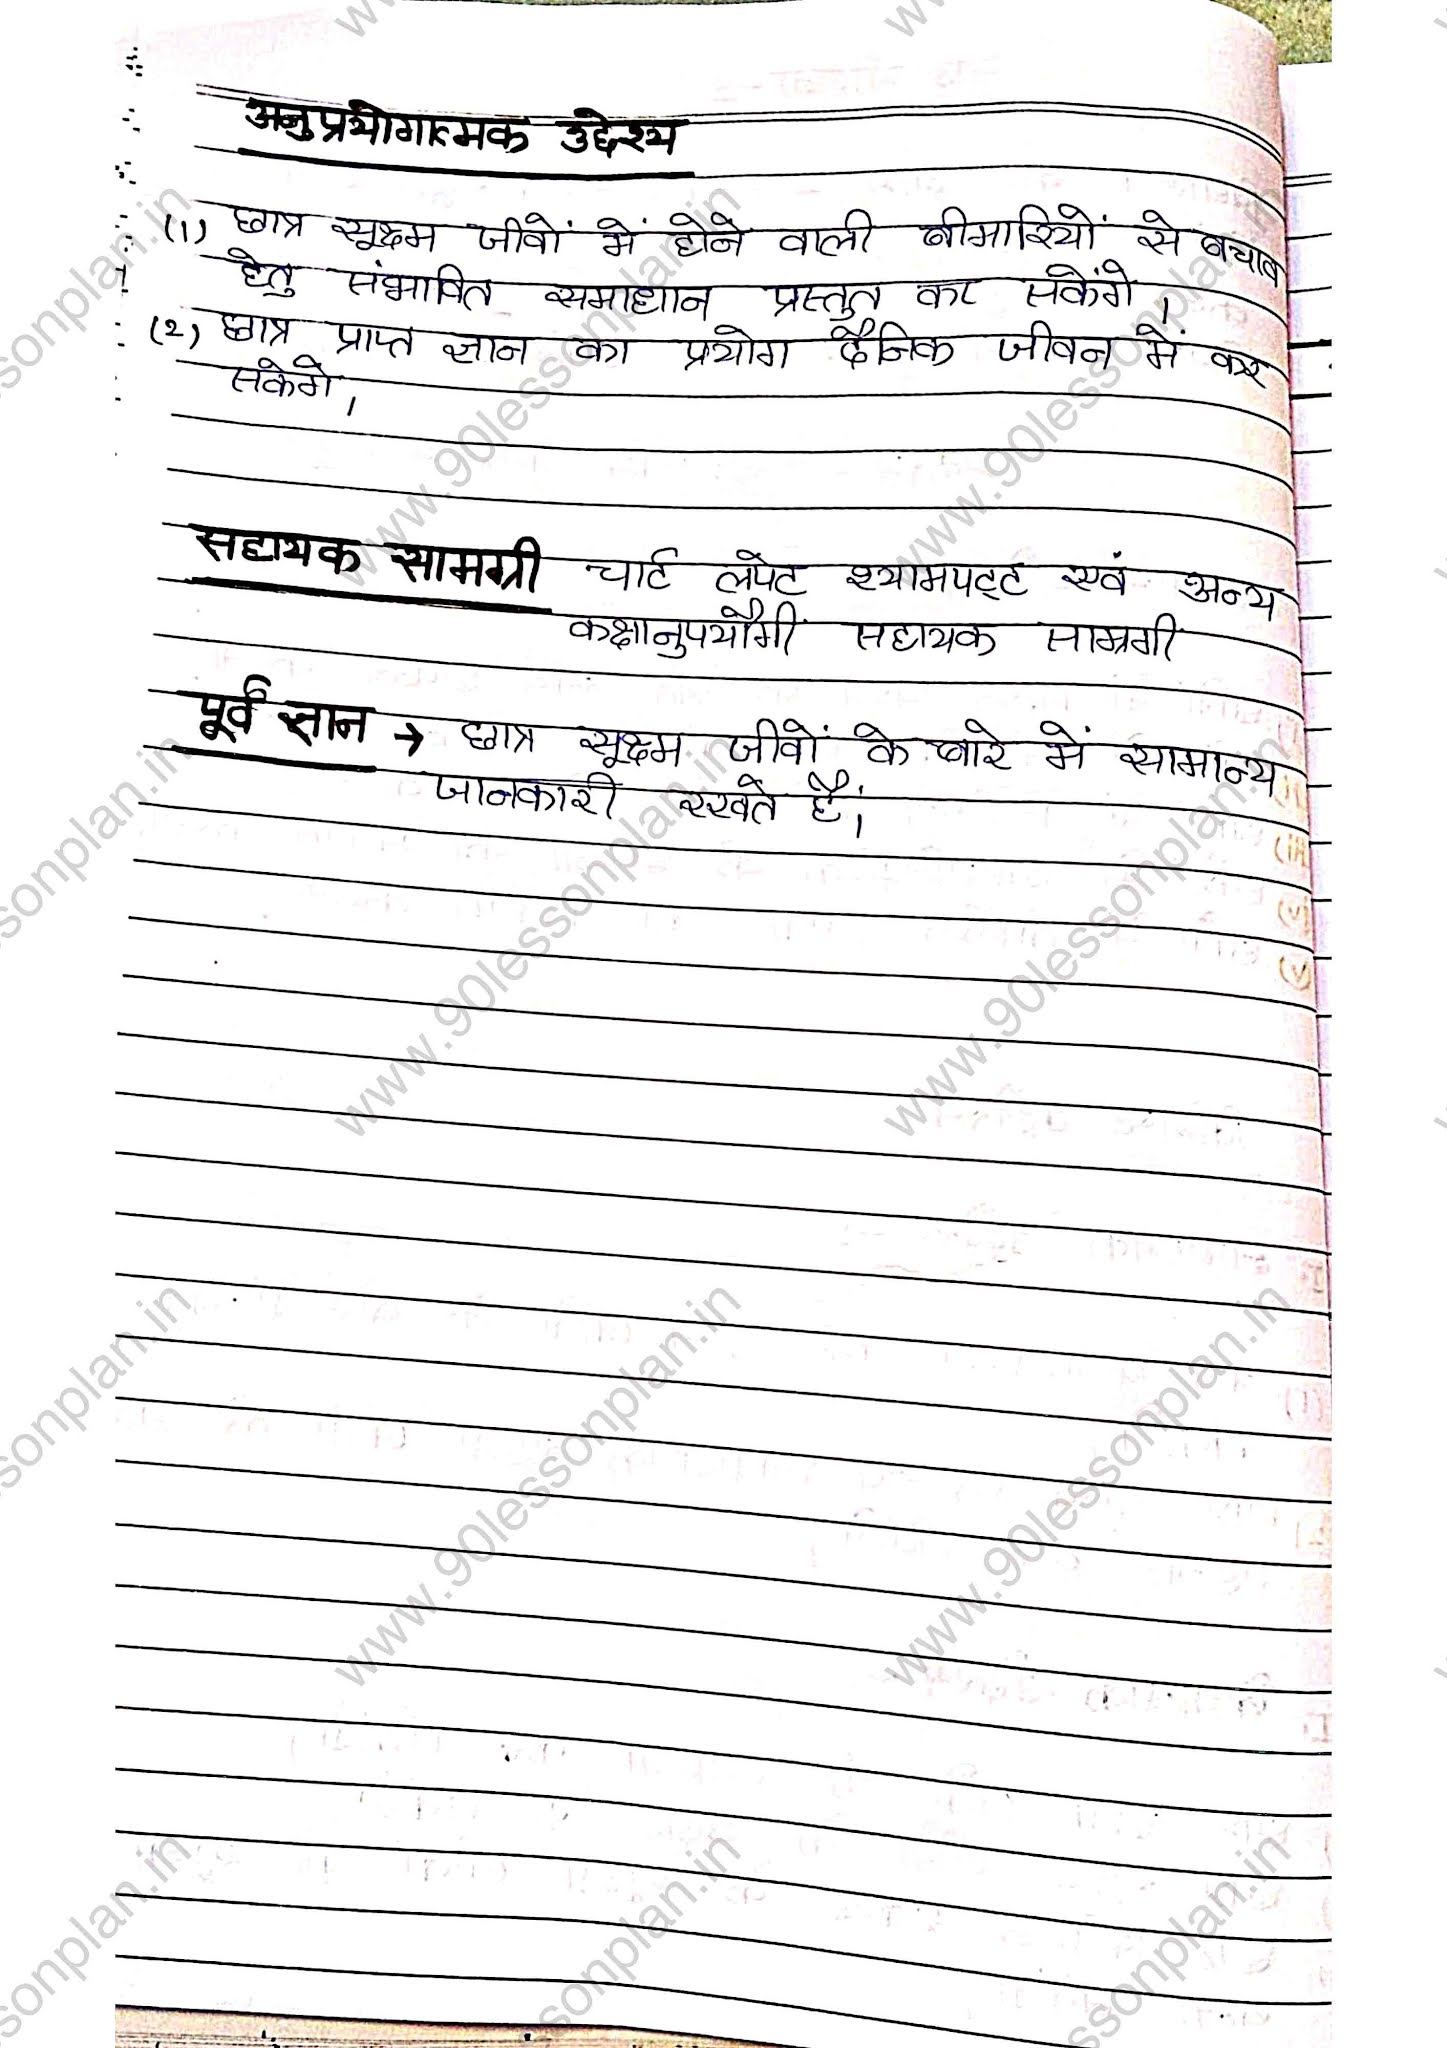 अनुप्रयोगात्मक उद्देश्य
(1) छात्र सूक्ष्म जीवों में होने वाली बीमारियों से बचाव
हेतु संभावित समाधान प्रस्तुत कर सकेंगे ।
(2) छात्र प्राप्त ज्ञान का प्रयोग दैनिक जीवन में कर
सकेगे ।
सहायक सामग्री चार्ट लपेट श्यामपट्ट एवं अन्य
कक्षानुपयौगी सहायक साम्रगी
पूर्व ज्ञान → छात्र सूक्ष्म जीवों के बारे में सामान्य
जानकारी रखते है।
www.90lessonplan.in